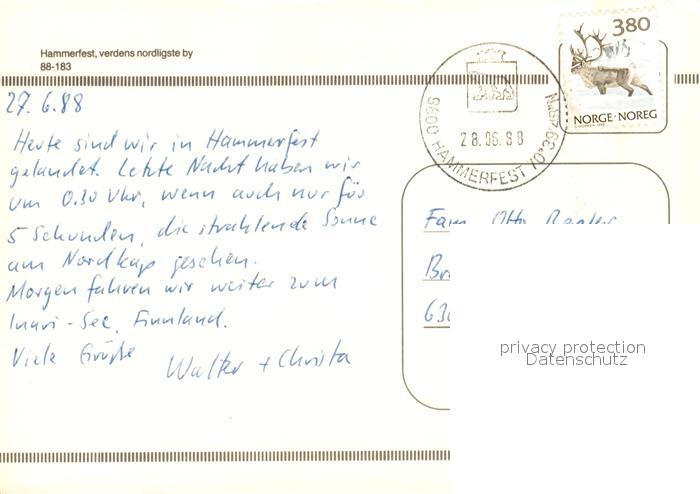 Hammerfest, verdens nordligste by
88-183
27.6.88
Heute sind wir in Hammerfest
gelandet. Letzte Nacht haben wir
um 0.30 Uhr, wenn auch nur für
5 Sekunden, die strahlende Sonne
am Nordkap gesehen.
Morgen fahren wir weiter zum
Inari-See, Finnland.
Viele Grüße
Walter + Christa
9600 HAMMERFEST 70°39'
28.06.88
380
NORGE·NOREG
Fam. Otto
privacy protection
Datenschutz